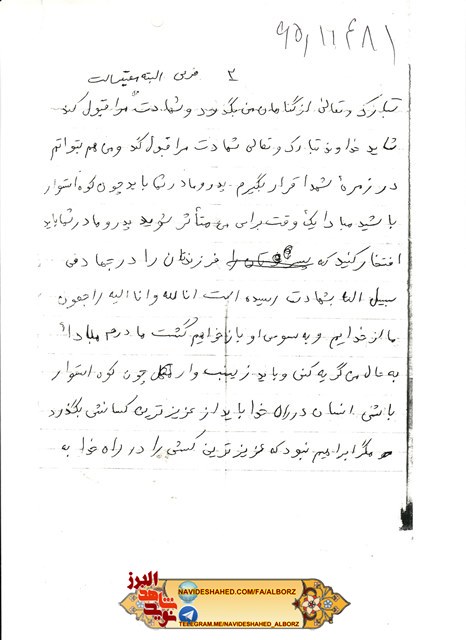 ۹۵,۱۱۴۸۱
۲
تبارک و تعالی از گناهان من بگذرد و شهادت مرا قبول کند
شاید خداوند تبارک و تعالی شهادت مرا قبول کند و من هم بتوانم
در زمرهٔ شهدا قرار بگیرم. پدر و مادر شما باید چون کوه استوار
باشید مبادا یک وقت برای من متأثر شوید پدر و مادر شما باید
افتخار کنید که فرزندتان را در جهاد فی
سبیل الله بشهادت رسیده است انا لله و انا الیه راجعون
ما از خدایم و به سوی او باز خواهیم گشت مادرم مبادا
به حال من گریه کنی و باید زینب وار چون کوه استوار
باشی انسان در راه خدا باید از عزیز ترین کسانش بگذرد
مگر ابراهیم نبود که عزیز ترین کسش را در راه خدا به
نوید شاهد البرز
NAVIDESHAHED.COM/FA/ALBORZ
TELEGRAM.ME/NAVIDESHAHED_ALBORZ